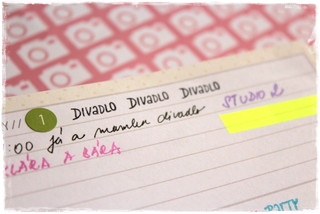 Y// 1 DIVADLO DIVADLO DIVADLO
:00 já a mamka divadlo STUDIO 2
KLÁRA A BÁRA